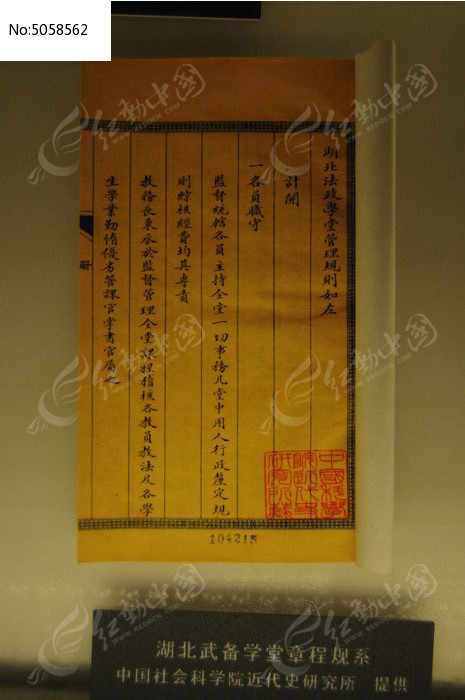 No:5058562
湖北法政學堂管理規則如左
計開
一各員職守
監督統轄各員主持全堂一切事務凡堂中用人行政釐定規
則綜核經費均其專責
教務長秉承於監督管理全堂課程稽核各教員教法及各學
生學業勤惰優劣管課官掌書官屬之
册
中國科學
院近代史
研究所藏
104215
湖北武备学堂章程规系
中国社会科学院近代史研究所 提供
红动中国
WWW.REDOCN.COM